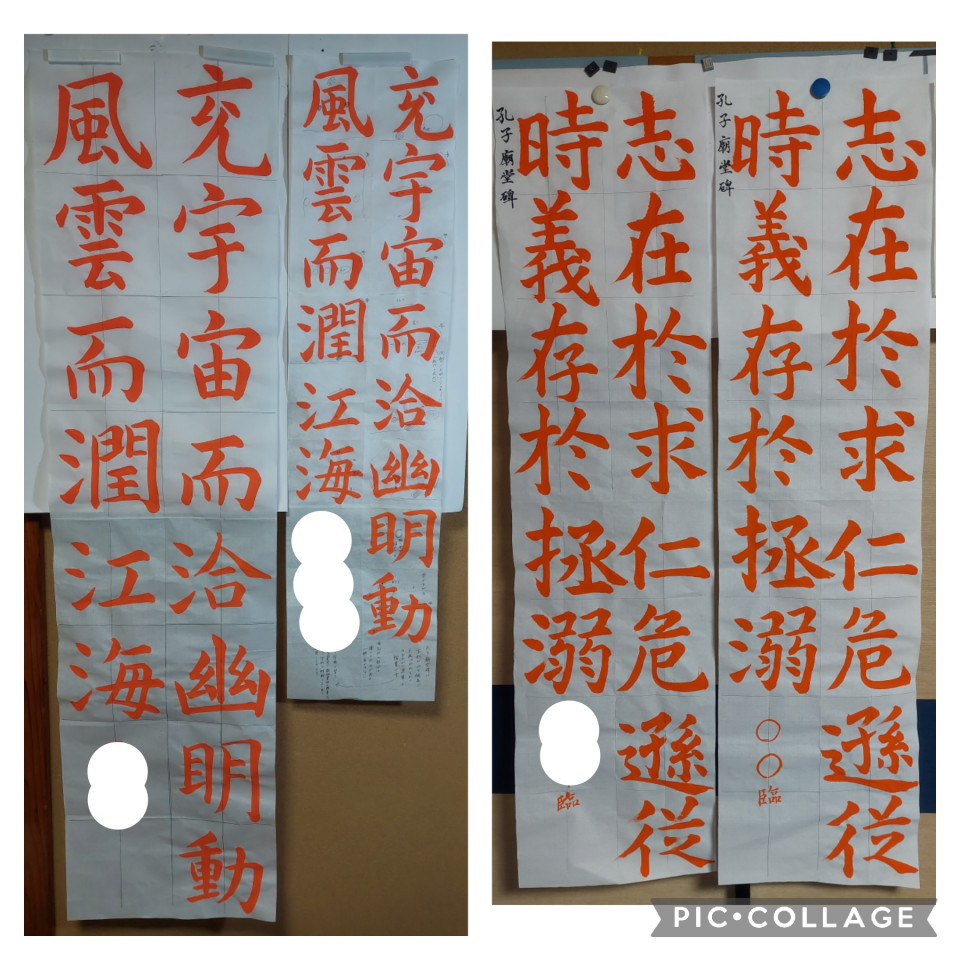 充宇宙而洽幽明動
風雲而潤江海
充宇宙而洽幽明動
風雲而潤江海
志在於求仁危遜従
時義存於拯溺
臨
孔子廟堂碑
志在於求仁危遜従
時義存於拯溺
〇〇臨
孔子廟堂碑
PIC•COLLAGE